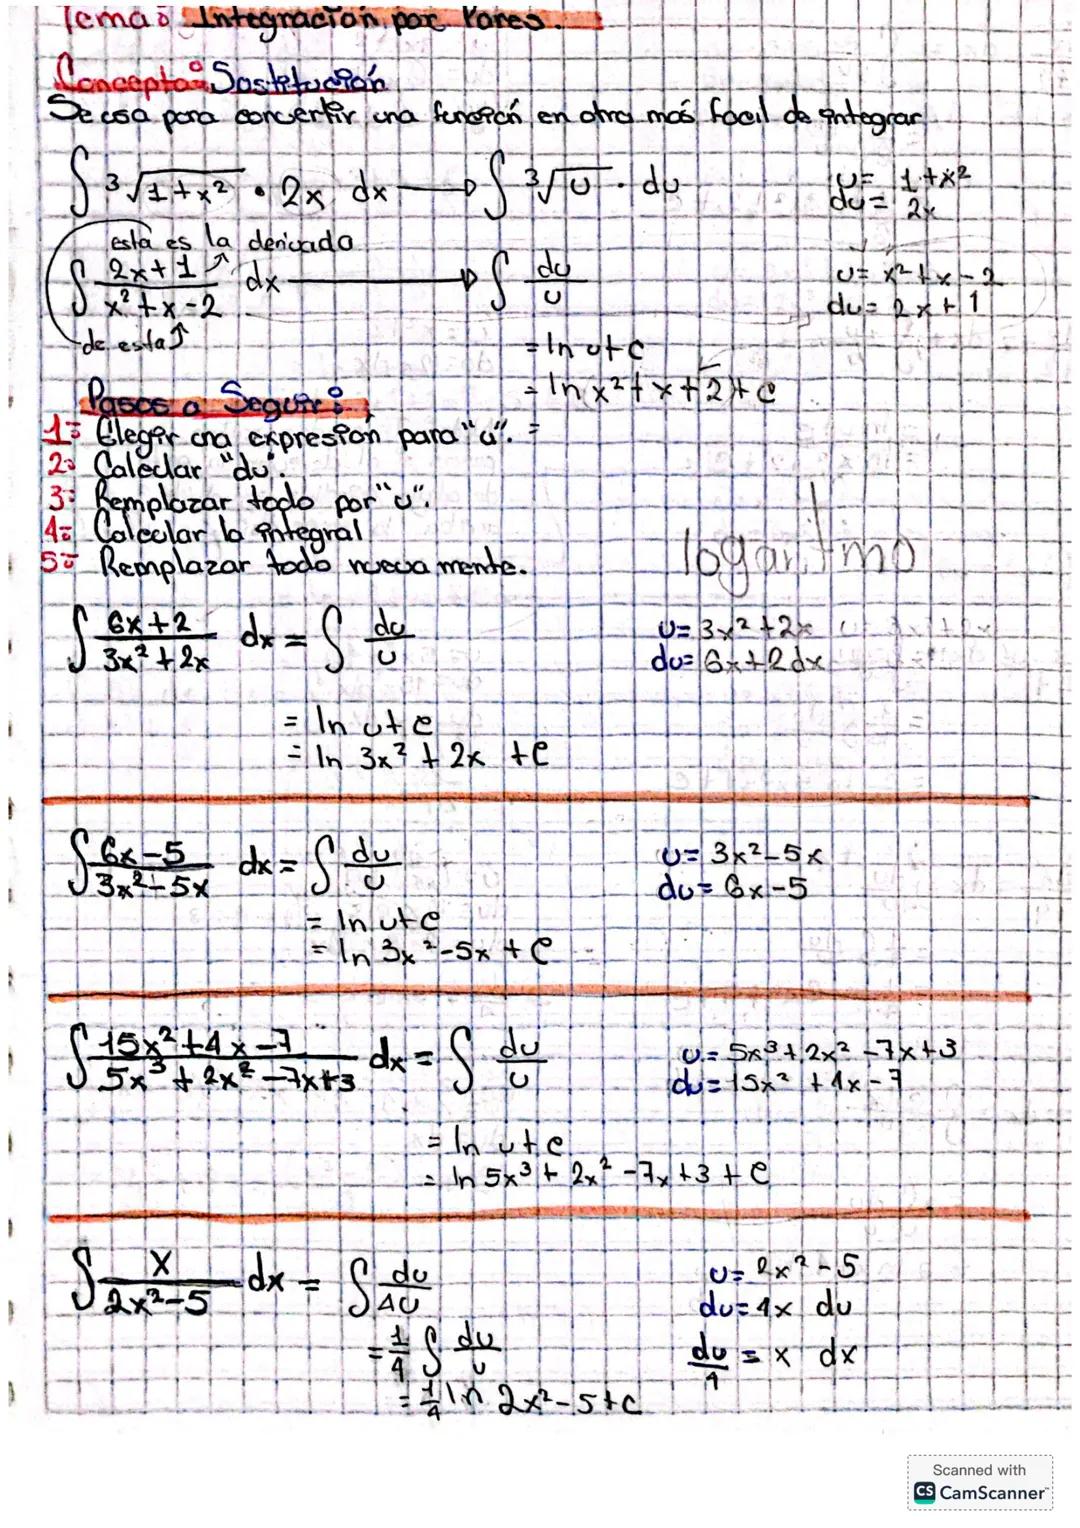 Tema: Integración por Partes.
Concepto: Sustitución
Se usa para convertir una función en otra más facil de integrar
∫ ³√1+x² • 2x dx → ∫ ³√u · du u = 1+x²
du = 2x
esta es la derivada
∫ (2x+1)/(x²+x-2) dx → ∫ du/u u = x²+x-2
du = 2x+1
de esta
= ln u+c
= ln x²+x+2+c
Pasos a Seguir:
1: Elegir una expresión para "u". =
2: Calcular "du".
3: Remplazar todo por "u".
4: Calcular la integral
5: Remplazar todo nueva mente.
logaritmo
∫ (6x+2)/(3x²+2x) dx = ∫ du/u u = 3x²+2x
du = 6x+2 dx
= ln u+c
= ln 3x²+2x +c
∫ (6x-5)/(3x²-5x) dx = ∫ du/u u = 3x²-5x
du = 6x-5
= ln u+c
= ln 3x²-5x + c
∫ (15x²+4x-7)/(5x³+2x²-7x+3) dx = ∫ du/u u = 5x³+2x²-7x+3
du = 15x²+4x-7
= ln u+c
= ln 5x³+2x²-7x+3+c
∫ x/(2x²-5) dx = ∫ du/4u u = 2x²-5
du = 4x du
= 1/4 ∫ du/u du/4 = x dx
= 1/4 ln 2x²-5+c
Scanned with
CS CamScanner